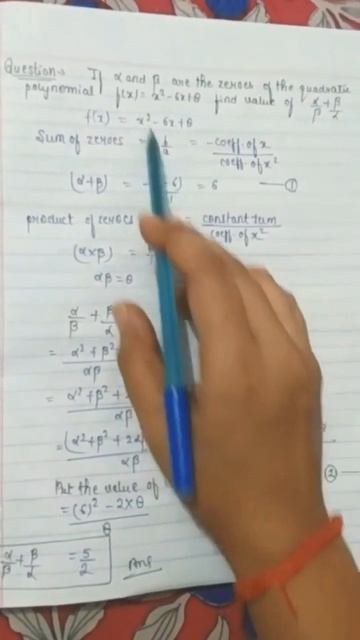 Question:- If α and β are the zeroes of the quadratic
polynomial f(x) = x²-6x+θ find value of α/β + β/α
f(x) = x²-6x+θ
Sum of zeroes = -coeff. of x / coeff. of x²
(α+β) = 6) = 6 —①
product of zeroes = constant term / coeff. of x²
(α×β) =
αβ = θ
α/β + β/α
= α²+β² / αβ
= α²+β²+ / αβ
= (α²+β²+2α / αβ
②
Put the value of
= (6)²-2×θ / θ
α/β + β/α = 5/2 Ans